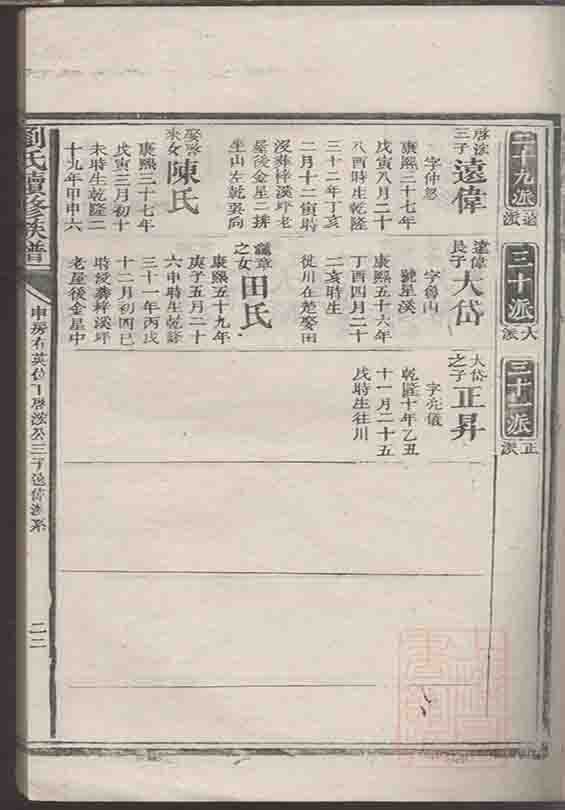 二十九派
遠派
三十派
大派
三十一派
正派
啓淙三子遠偉
字仲恕
康熙三十七年
戊寅八月二十
八酉時生乾隆
三十二年丁亥
二月十二寅時
歿葬梓溪坪老
屋後金星二排
坐山左乾巽向
娶
來女陳氏
康熙三十七年
戊寅三月初十
未時生乾隆二
十九年甲申六
遠偉長子大岱
字魯山
號星溪
康熙五十六年
丁酉四月二十
二亥時生
徙川在楚娶田
之女田氏
康熙五十九年
庚子五月二十
六申時生乾隆
三十一年丙戌
十二月初四巳
時歿葬梓溪坪
老屋後金星中
大岱之子正昇
字亮儀
乾隆十年乙丑
十一月二十五
戌時生往川
劉氏續修族譜
申房有英位下啓淙公三子遠偉派系
二二